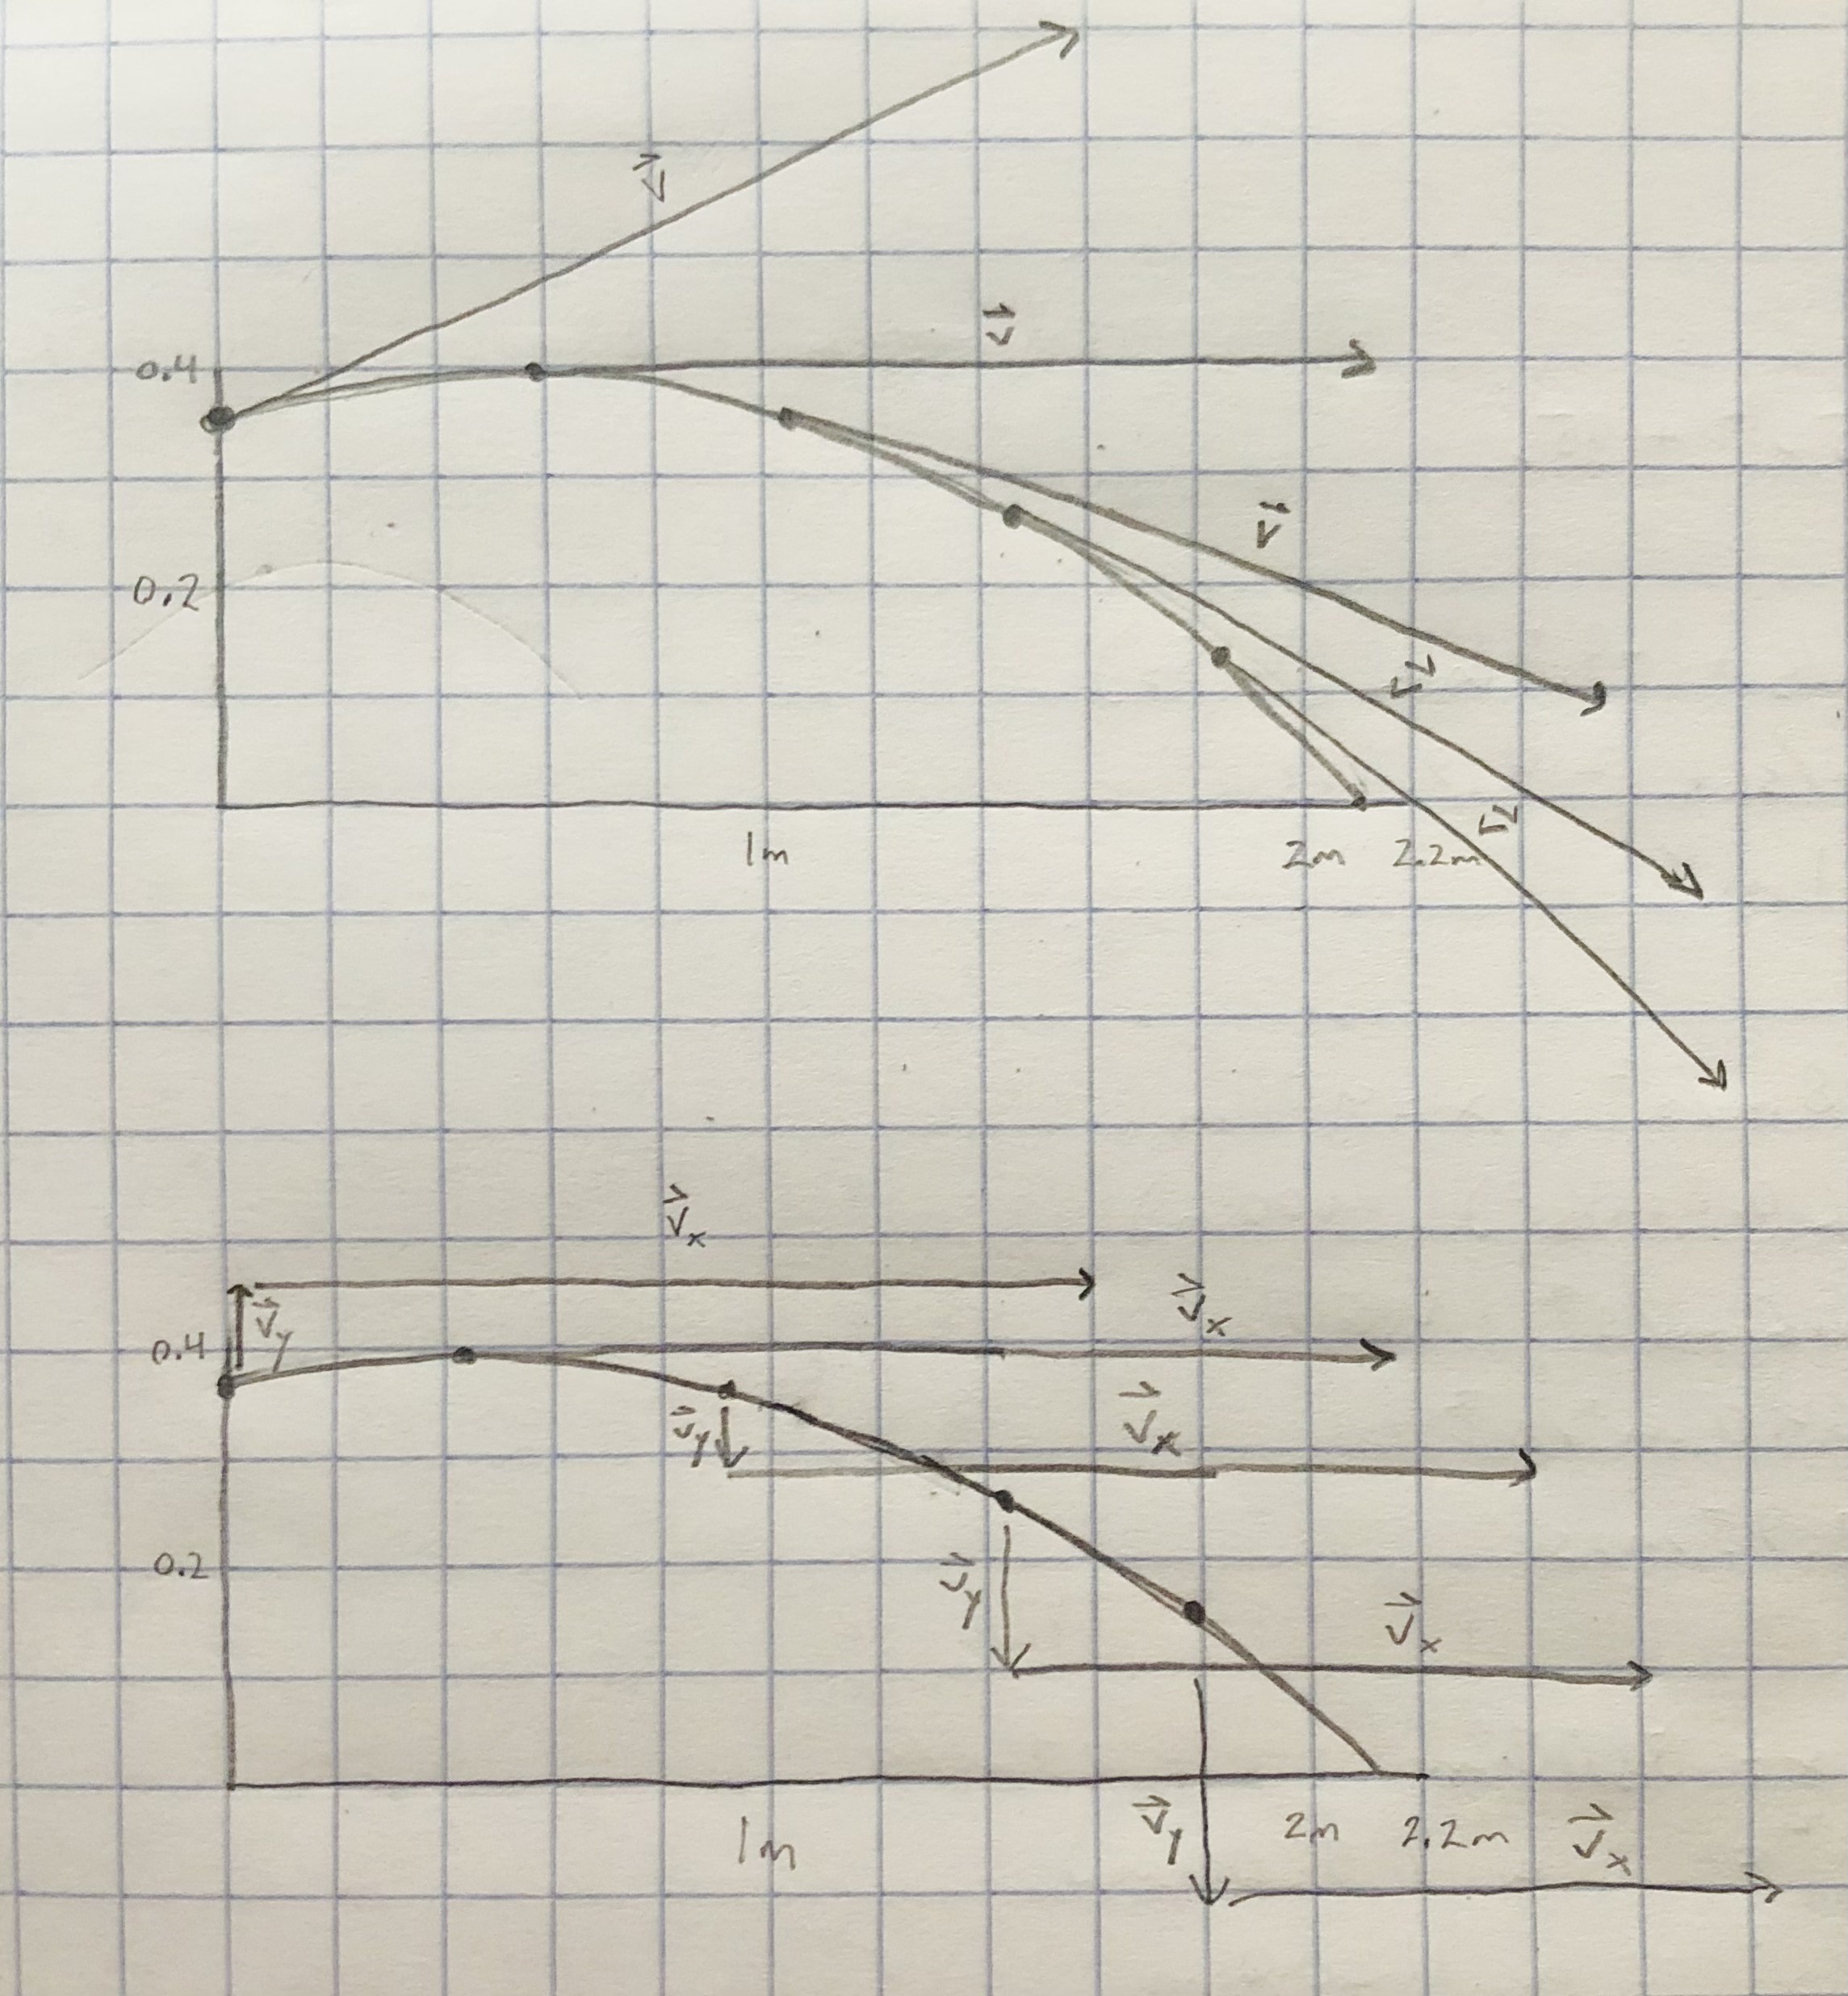 v⃗
v⃗
0.4
v⃗
0.2
v⃗
v⃗
1m 2m 2.2m
v⃗ₓ
v⃗ₓ
v⃗y
0.4
v⃗ₓ
v⃗y
0.2
v⃗y
v⃗ₓ
v⃗y
1m 2m 2.2m v⃗ₓ